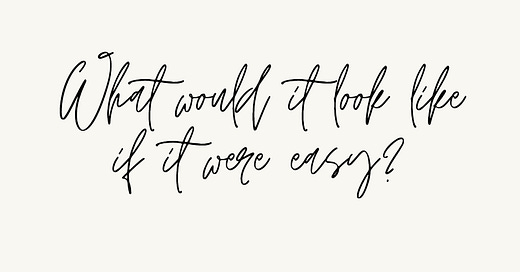 What would it look like
if it were easy?